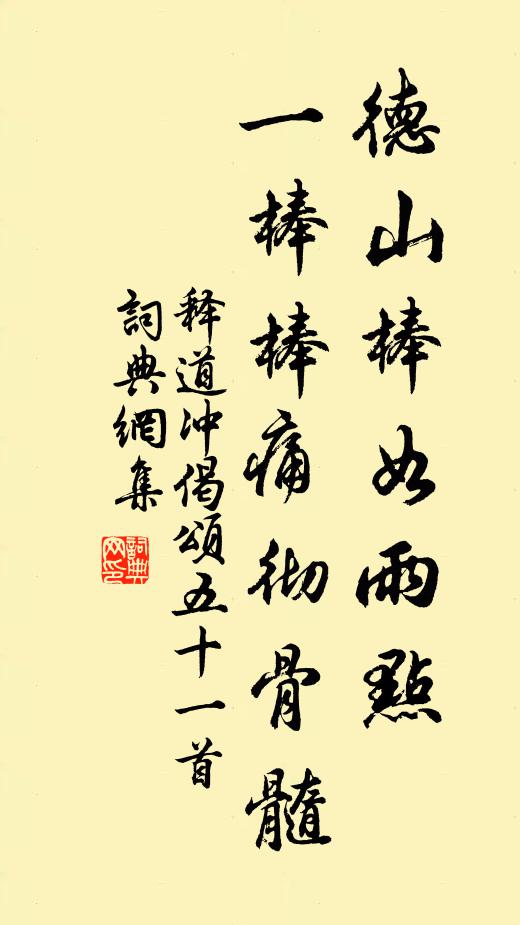 德山棒如雨點
一棒棒痛彻骨髓
释道冲偈頌五十一首
詞典網集
詞典网印